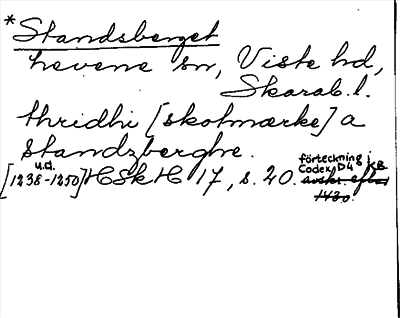 *Standsberget
Levene sn, Viste hd,
Skarab. l.
thridhi [skotmærke] a
standzberghe.
u.d.
[1238-1250] HSkH 17, s. 20. förteckning i
Codex D4 KB
avskr. efter
1430.